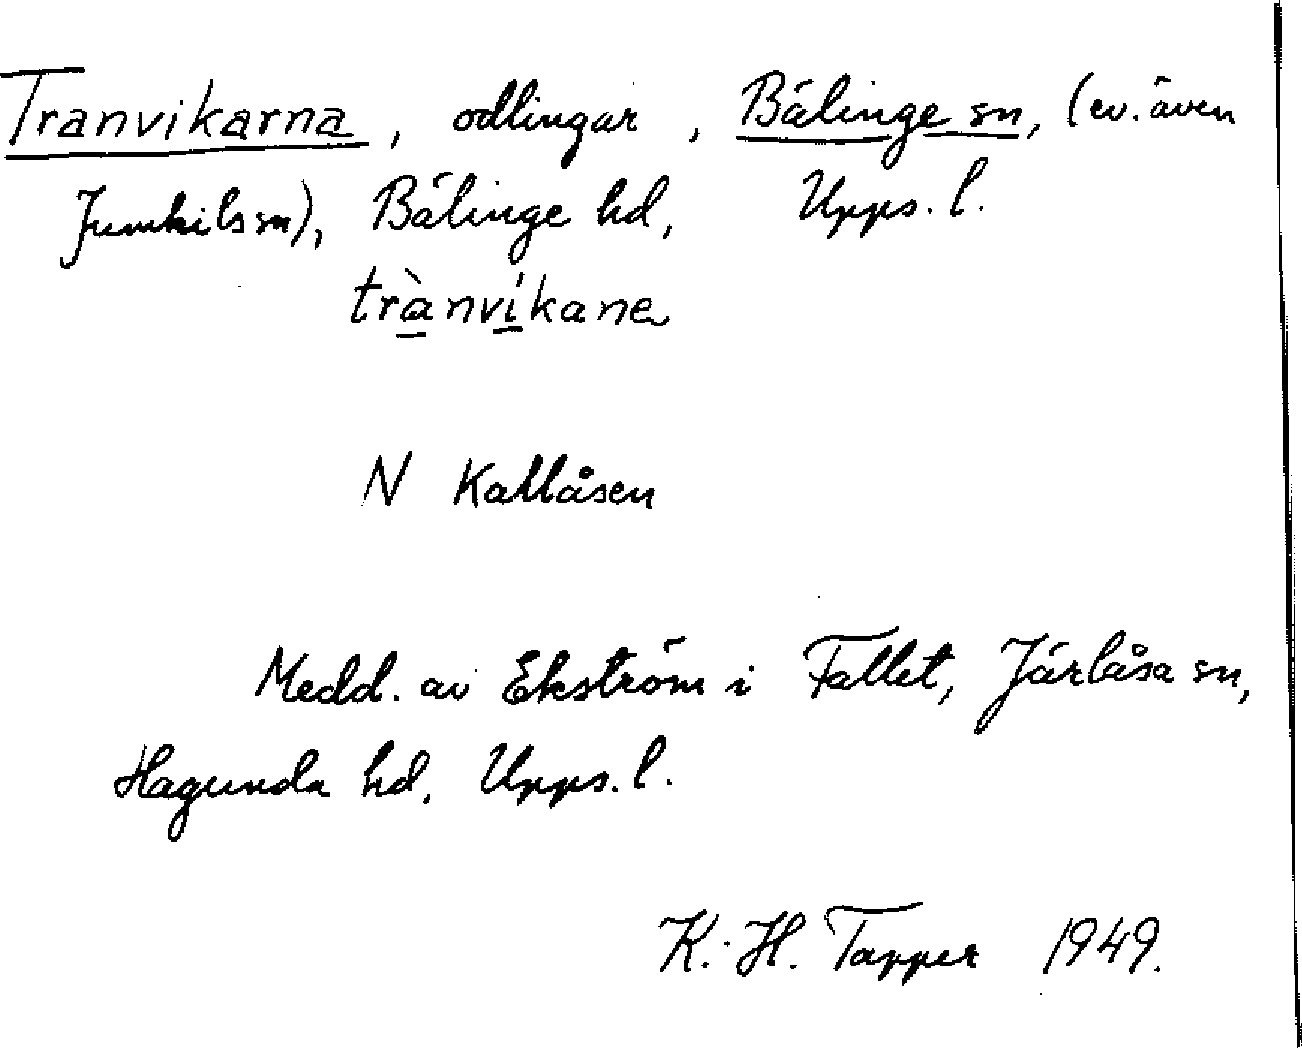 Tranvikarna, odlingar, Bälinge sn, (ev. även
Jumkils sn), Bälinge hd, Upps. l.
trànvíkane
N Kallåsen
Medd. av Ekström i Fallet, Järlåsa sn,
Hagunda hd, Upps. l.
K.-H. Tapper 1949.